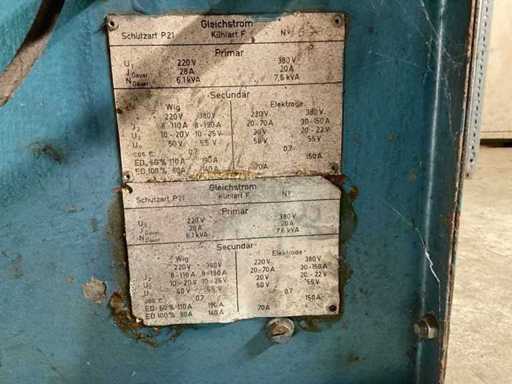 Gleichstrom
Schutzart P21 Kühlart F Nr.
Primär
U₁ 220 V 380 V
J Dauer 28 A 20 A
N Dauer 6,1 kVA 7,6 kVA
Secundär
Wig Elektrode
220 V 380 V 220 V 380 V
J₂ 8-110 A 8-190 A 20-70 A 30-150 A
U₂ 10-20 V 10-25 V 20 V 20-22 V
U 50 V 55 V 50 V 55 V
cos φ 0,7 0,7
ED 60% 110 A 190 A 150 A
ED 100% 80 A 140 A 70 A
Gleichstrom
Schutzart P21 Kühlart F Nr
Primär
220 V 380 V
J Dauer 28 A 20 A
N Dauer 6,1 kVA 7,6 kVA
Secundär
Wig Elektrode
220 V 380 V 220 V 380 V
J₂ 8-110 A 8-190 A 20-70 A 30-150 A
U₂ 10-20 V 10-25 V 20 V 20-22 V
55 V 50 V 55 V
cos 0,7 0,7
ED 60% 110 A 190 A 150 A
ED 100% 80 A 140 A 70 A